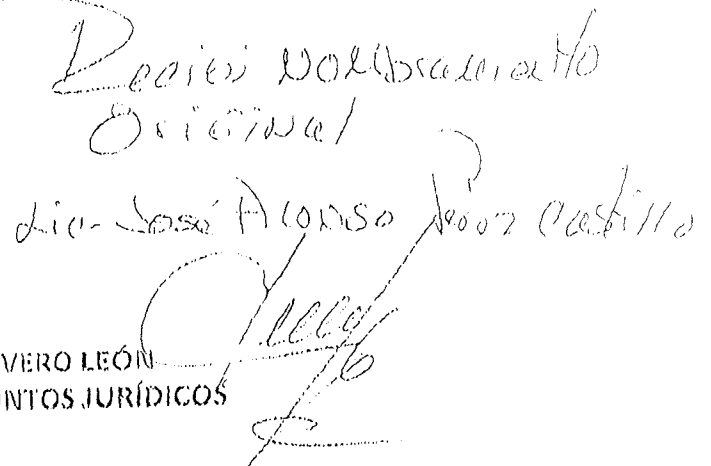 Recibí Nombramiento
Original
Lic. José Alonso Pérez Castillo
VERO LEÓN
NTOS JURÍDICOS